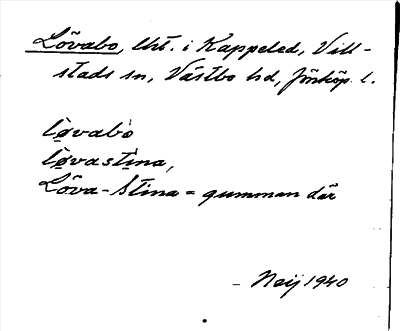 Lövabo, lht. i Kappeled, Vill-
stads sn, Västbo hd, Jönköp. l.
lø̱vabò
lø̱vasti̱na,
Löva-Stina = gumman där
- Neij 1940